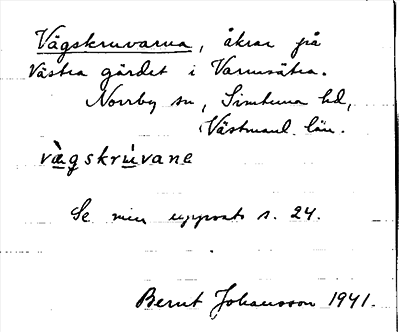 Vägskruvarna, åkrar på
Västra gärdet i Varmsätra.
Norrby sn, Simtuna hd,
Västmanl. län.
vàgskrúvane
Se min uppsats s. 24.
Bernt Johansson 1941.